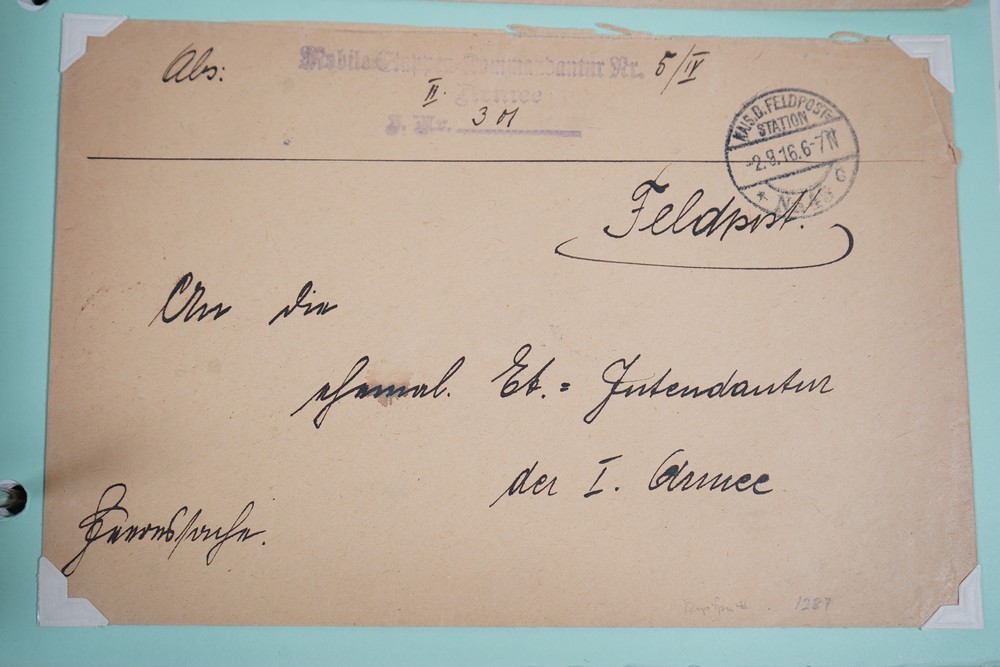 Abs: Mobile Etappen-Kommandantur Nr. 5/IV
II. Armee
J. Nr. 301
KAIS. D. FELDPOST-
STATION
-2.9.16.6-7N
Feldpost.
An die
ehemal. Et.= Intendantur
der I. Armee
Heeressache.
1287